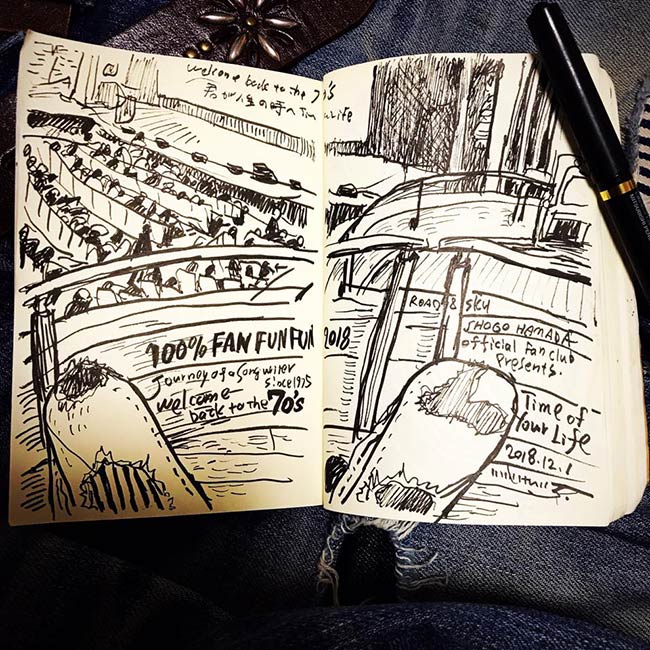 welcome back to the 70's
君が人生の時へ Time of Your Life
100% FAN FUN FUN 2018
Journey of a Songwriter
since 1975
welcome
back to the 70's
ROAD & SKY
SHOGO HAMADA
official fan club
Presents.
Time of
Your Life
2018.12.1